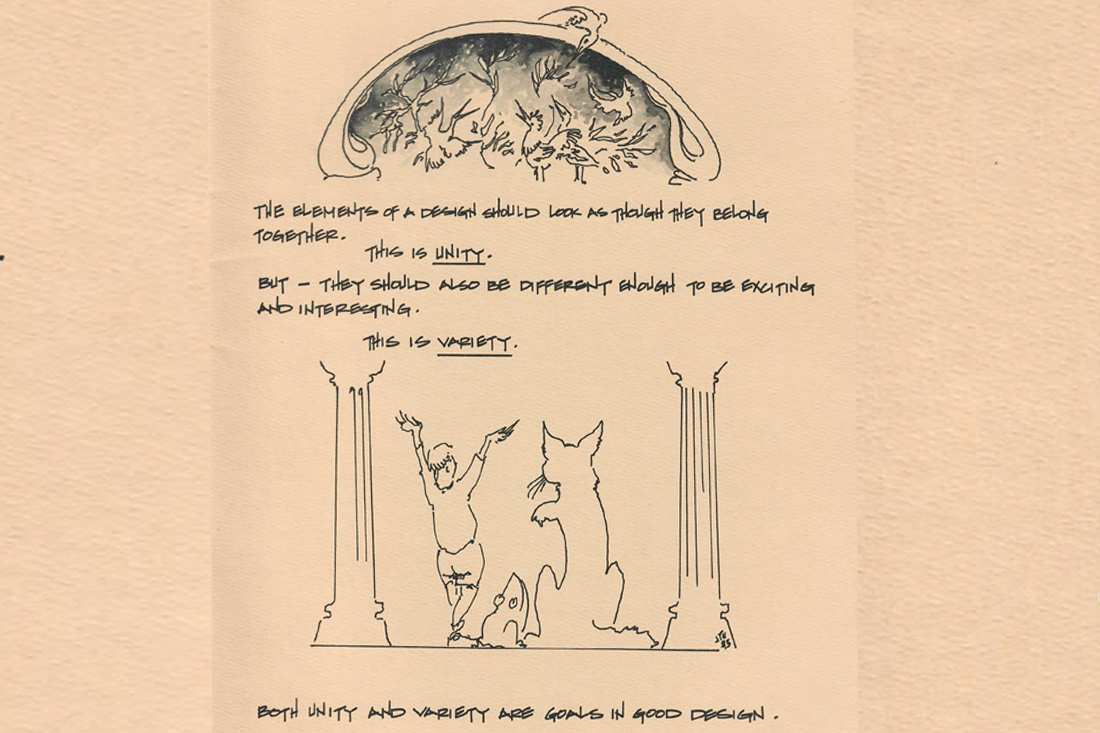 THE ELEMENTS OF A DESIGN SHOULD LOOK AS THOUGH THEY BELONG
TOGETHER.
THIS IS UNITY.
BUT – THEY SHOULD ALSO BE DIFFERENT ENOUGH TO BE EXCITING
AND INTERESTING.
THIS IS VARIETY.
JTH
83
BOTH UNITY AND VARIETY ARE GOALS IN GOOD DESIGN.